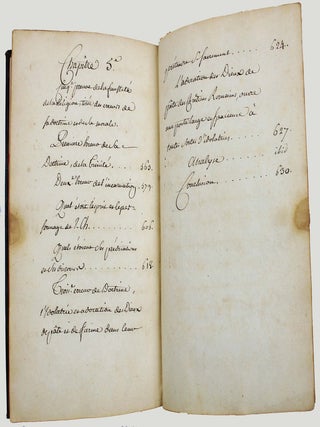 Chapitre 5e
5eme preuve de la fausseté
de la religion tirée des erreurs de
sa doctrine et de sa morale.
Premiere erreur de la
Doctrine, de la Trinité . . . 563.
Deux.e erreur de l'incarnation 579.
Quel étoit l'esprit et le per-
sonnage de J. Ch. . . . . 606.
Quels étoient ses prédications
et ses discours . . . . 618.
Trois.e erreur de Doctrine,
l'Idolatrie et adoration des Dieux
de pâte et de farine dans leur
prétendu St sacrement. . . . . 624.
L'adoration des Dieux de
pâte des Chrétiens Romains, ouvre
une porte large et spacieuse à
toutes sortes d'idolatries . . . . 627.
Analyse . . . . . ibid
Conclusion . . . . . . . . 630.